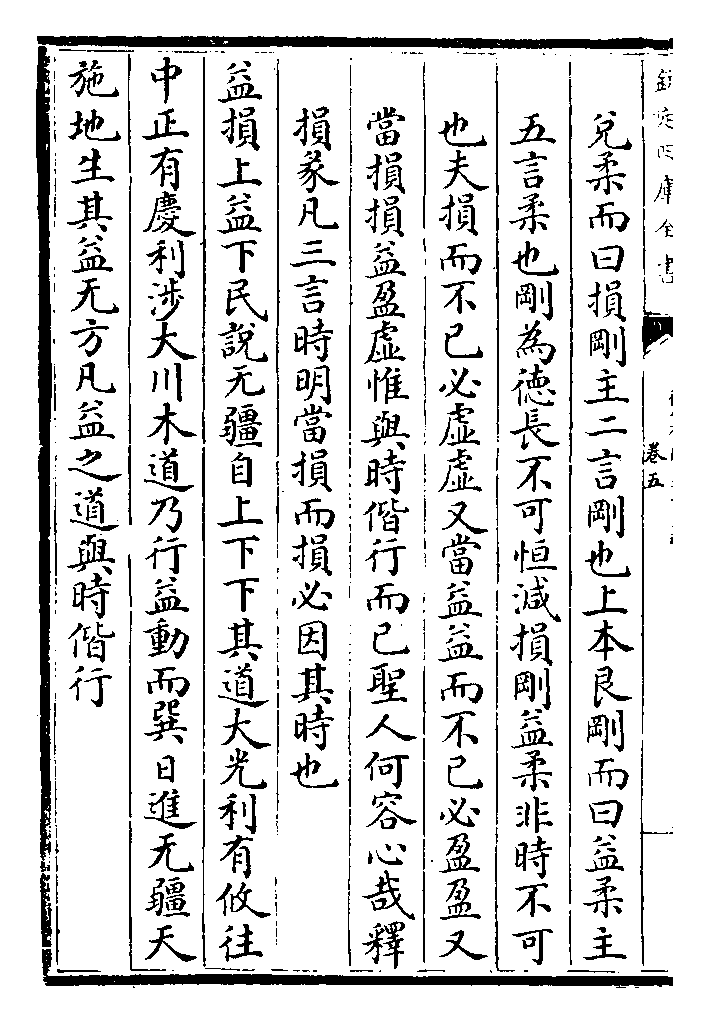 欽定四庫全書
卷五
兌柔而曰損剛主二言剛也上本艮剛而曰益柔主
五言柔也剛為徳長不可恒減損剛益柔非時不可
也夫損而不已必虛虛又當益益而不已必盈盈又
當損損益盈虛惟與時偕行而已聖人何容心哉釋
損彖凡三言時明當損而損必因其時也
益損上益下民說无疆自上下下其道大光利有攸往
中正有慶利涉大川木道乃行益動而巽日進无疆天
施地生其益无方凡益之道與時偕行